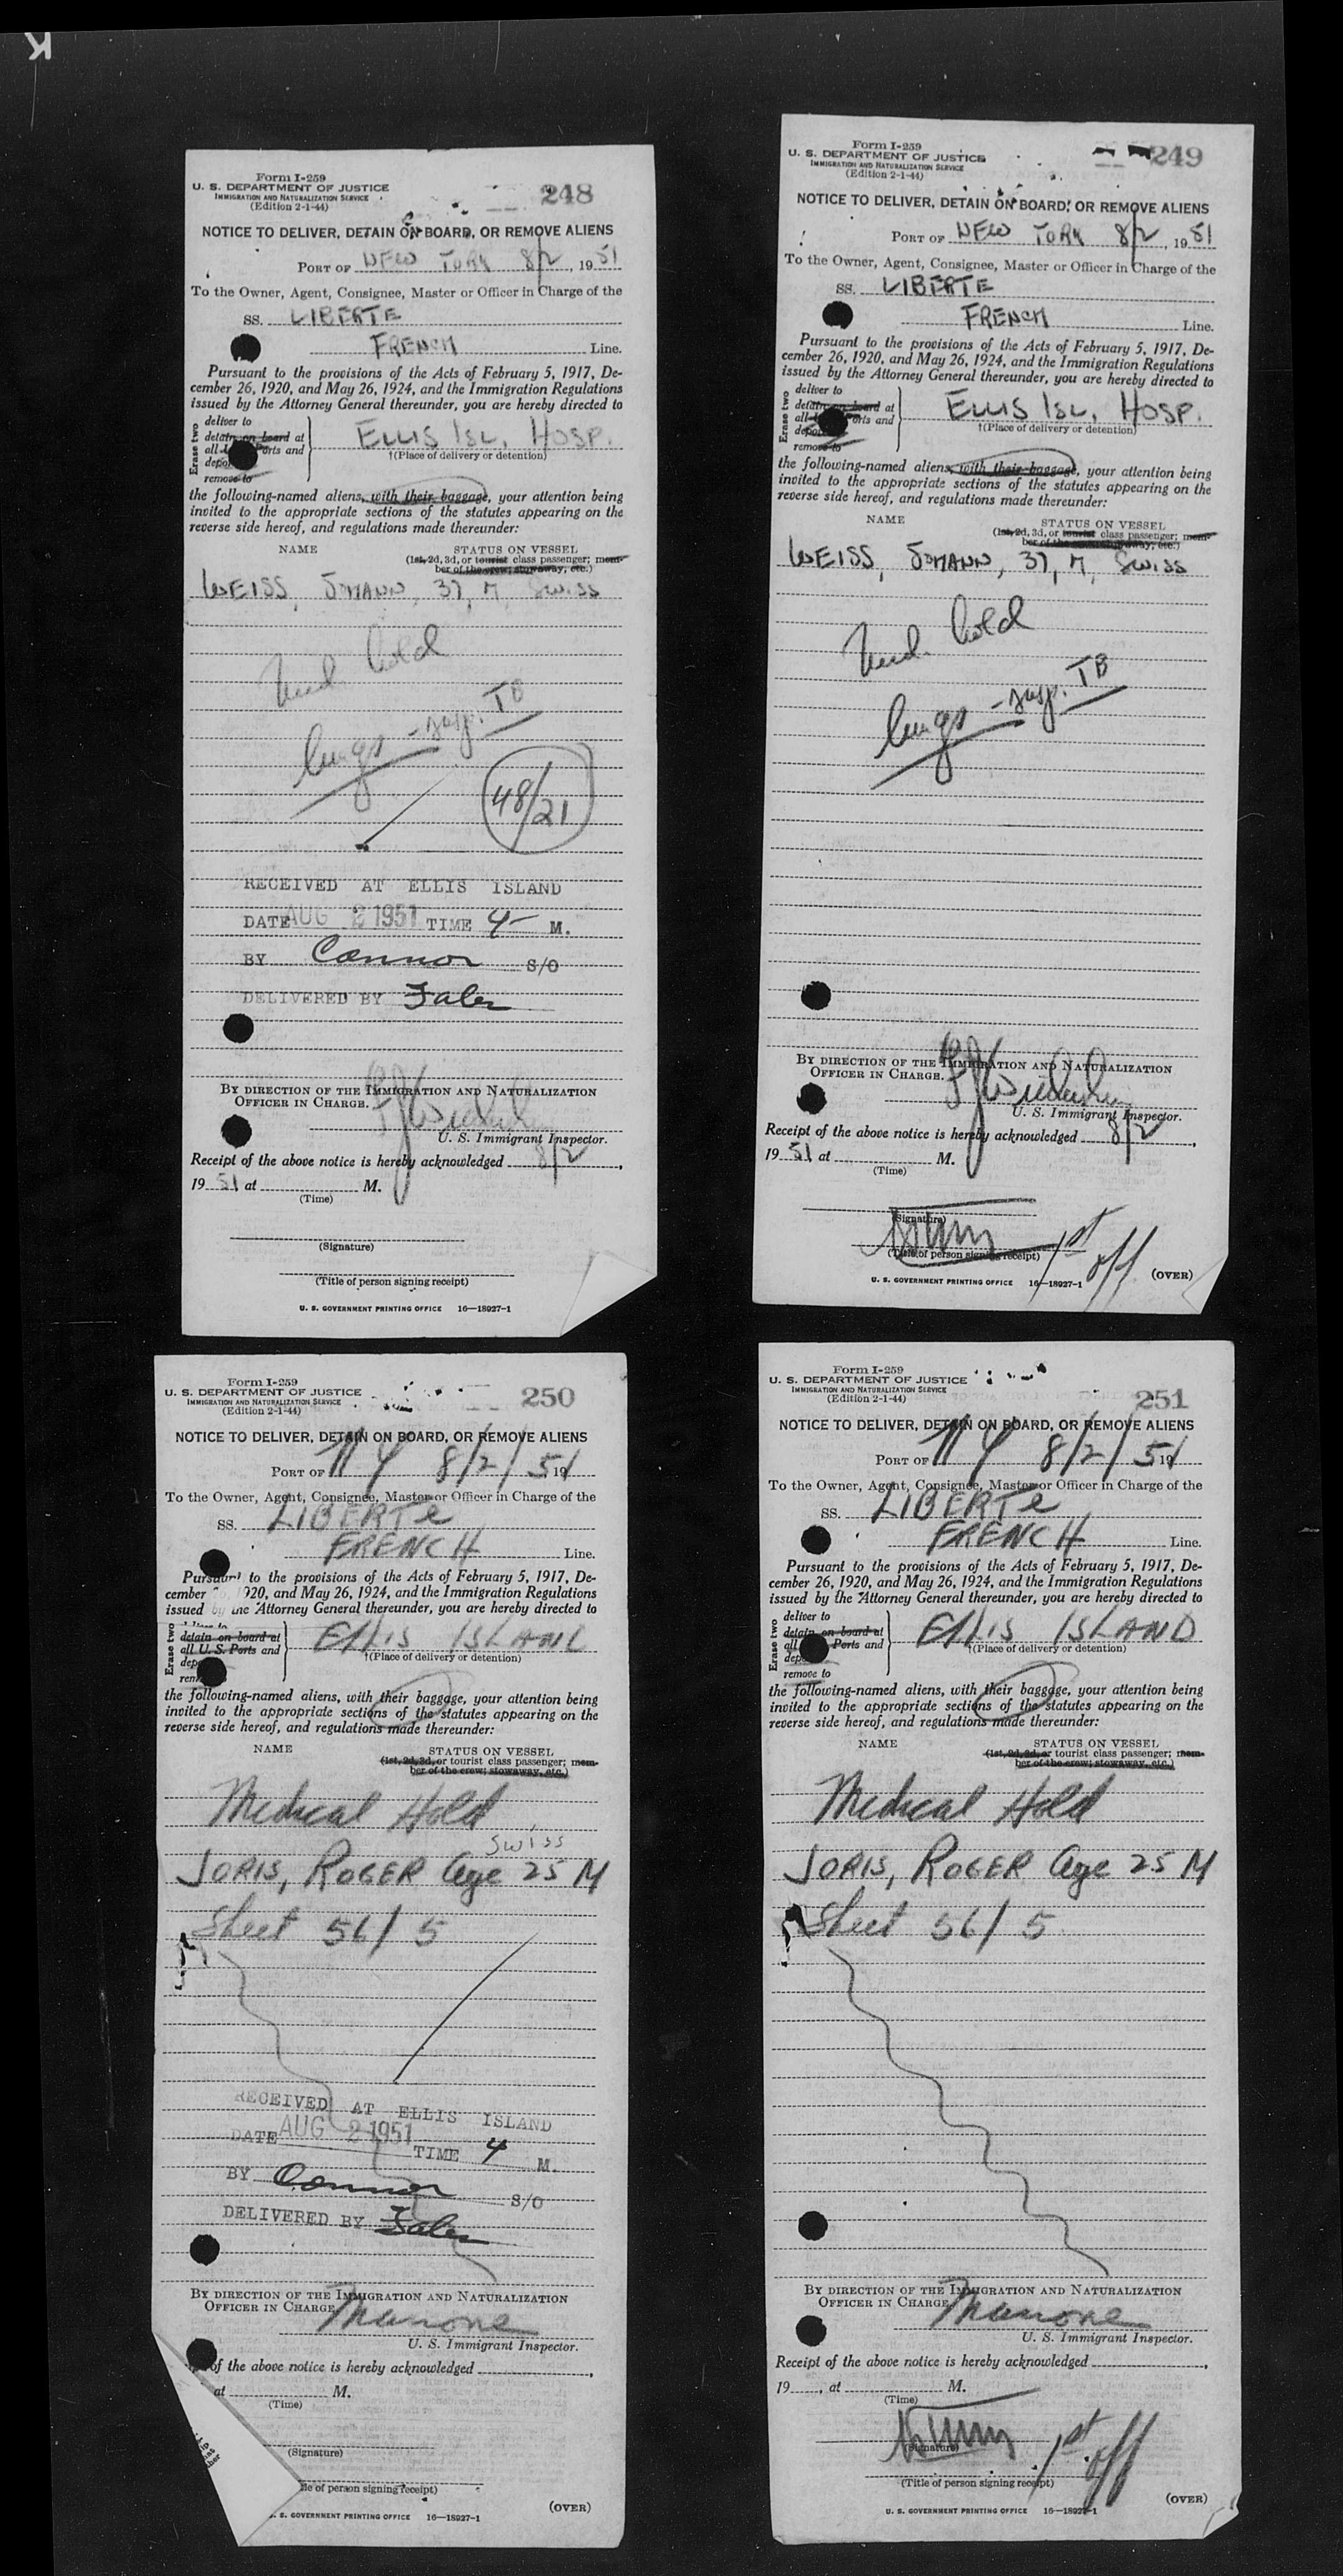 K
Form I-259
U. S. DEPARTMENT OF JUSTICE
IMMIGRATION AND NATURALIZATION SERVICE
(Edition 2-1-44)
248
NOTICE TO DELIVER, DETAIN ON BOARD, OR REMOVE ALIENS
PORT OF NEW YORK 8/2, 1951
To the Owner, Agent, Consignee, Master or Officer in Charge of the
SS. LIBERTE
FRENCH Line.
Pursuant to the provisions of the Acts of February 5, 1917, De-
cember 26, 1920, and May 26, 1924, and the Immigration Regulations
issued by the Attorney General thereunder, you are hereby directed to
Erase two
deliver to
detain on board at
all Ports and
remove to
ELLIS ISL, HOSP.
†(Place of delivery or detention)
the following-named aliens, with their baggage, your attention being
invited to the appropriate sections of the statutes appearing on the
reverse side hereof, and regulations made thereunder:
NAME STATUS ON VESSEL
(1st, 2d, 3d, or tourist class passenger; mem-
ber of the crew; stowaway, etc.)
WEISS, JOHANN, 37, M, SWISS
Med. hold
lungs - susp. TB
48/21
RECEIVED AT ELLIS ISLAND
DATE AUG 2 1951 TIME 4- M.
BY Connor S/O
DELIVERED BY Faler
BY DIRECTION OF THE IMMIGRATION AND NATURALIZATION
OFFICER IN CHARGE.
U. S. Immigrant Inspector.
Receipt of the above notice is hereby acknowledged 8/2,
19 51 at M.
(Time)
(Signature)
(Title of person signing receipt)
U. S. GOVERNMENT PRINTING OFFICE 16—18927-1
Form I-259
U. S. DEPARTMENT OF JUSTICE
IMMIGRATION AND NATURALIZATION SERVICE
(Edition 2-1-44)
249
NOTICE TO DELIVER, DETAIN ON BOARD, OR REMOVE ALIENS
PORT OF NEW YORK 8/2, 1951
To the Owner, Agent, Consignee, Master or Officer in Charge of the
SS. LIBERTE
FRENCH Line.
Pursuant to the provisions of the Acts of February 5, 1917, De-
cember 26, 1920, and May 26, 1924, and the Immigration Regulations
issued by the Attorney General thereunder, you are hereby directed to
Erase two
deliver to
detain on board at
all Ports and
remove to
ELLIS ISL, HOSP.
†(Place of delivery or detention)
the following-named aliens, with their baggage, your attention being
invited to the appropriate sections of the statutes appearing on the
reverse side hereof, and regulations made thereunder:
NAME STATUS ON VESSEL
(1st, 2d, 3d, or tourist class passenger; mem-
ber of the crew; stowaway, etc.)
WEISS, JOHANN, 37, M, SWISS
Med. hold
lungs - susp. TB
BY DIRECTION OF THE IMMIGRATION AND NATURALIZATION
OFFICER IN CHARGE.
U. S. Immigrant Inspector.
Receipt of the above notice is hereby acknowledged 8/2,
19 51 at M.
(Time)
(Signature)
1st off
(Title of person signing receipt)
U. S. GOVERNMENT PRINTING OFFICE 16—18927-1 (OVER)
Form I-259
U. S. DEPARTMENT OF JUSTICE
IMMIGRATION AND NATURALIZATION SERVICE
(Edition 2-1-44)
250
NOTICE TO DELIVER, DETAIN ON BOARD, OR REMOVE ALIENS
PORT OF NY 8/2/51 19
To the Owner, Agent, Consignee, Master or Officer in Charge of the
SS. LIBERTE
FRENCH Line.
Pursuant to the provisions of the Acts of February 5, 1917, De-
cember 1920, and May 26, 1924, and the Immigration Regulations
issued by the Attorney General thereunder, you are hereby directed to
Erase two
detain on board at
all U. S. Ports and
ELLIS ISLAND
†(Place of delivery or detention)
the following-named aliens, with their baggage, your attention being
invited to the appropriate sections of the statutes appearing on the
reverse side hereof, and regulations made thereunder:
NAME STATUS ON VESSEL
(1st, 2d, 3d, or tourist class passenger; mem-
ber of the crew; stowaway, etc.)
Medical Hold
SWISS
JORIS, ROGER age 25 M
Sheet 56/5
RECEIVED AT ELLIS ISLAND
DATE AUG 2 1951 TIME 4 M.
BY Connor S/O
DELIVERED BY Faler
BY DIRECTION OF THE IMMIGRATION AND NATURALIZATION
OFFICER IN CHARGE
U. S. Immigrant Inspector.
of the above notice is hereby acknowledged ,
at M.
(Time)
(Signature)
le of person signing receipt)
(OVER)
. S. GOVERNMENT PRINTING OFFICE 16—18927-1
Form I-259
U. S. DEPARTMENT OF JUSTICE
IMMIGRATION AND NATURALIZATION SERVICE
(Edition 2-1-44)
251
NOTICE TO DELIVER, DETAIN ON BOARD, OR REMOVE ALIENS
PORT OF NY 8/2/51 19
To the Owner, Agent, Consignee, Master or Officer in Charge of the
SS. LIBERTE
FRENCH Line.
Pursuant to the provisions of the Acts of February 5, 1917, De-
cember 26, 1920, and May 26, 1924, and the Immigration Regulations
issued by the Attorney General thereunder, you are hereby directed to
Erase two
deliver to
detain on board at
all Ports and
remove to
ELLIS ISLAND
†(Place of delivery or detention)
the following-named aliens, with their baggage, your attention being
invited to the appropriate sections of the statutes appearing on the
reverse side hereof, and regulations made thereunder:
NAME STATUS ON VESSEL
(1st, 2d, 3d, or tourist class passenger; mem-
ber of the crew; stowaway, etc.)
Medical Hold
JORIS, ROGER age 25 M
Sheet 56/5
BY DIRECTION OF THE IMMIGRATION AND NATURALIZATION
OFFICER IN CHARGE
U. S. Immigrant Inspector.
Receipt of the above notice is hereby acknowledged ,
19 , at M.
(Time)
(Signature)
1st off
(Title of person signing receipt)
(OVER)
U. S. GOVERNMENT PRINTING OFFICE 16—18927-1